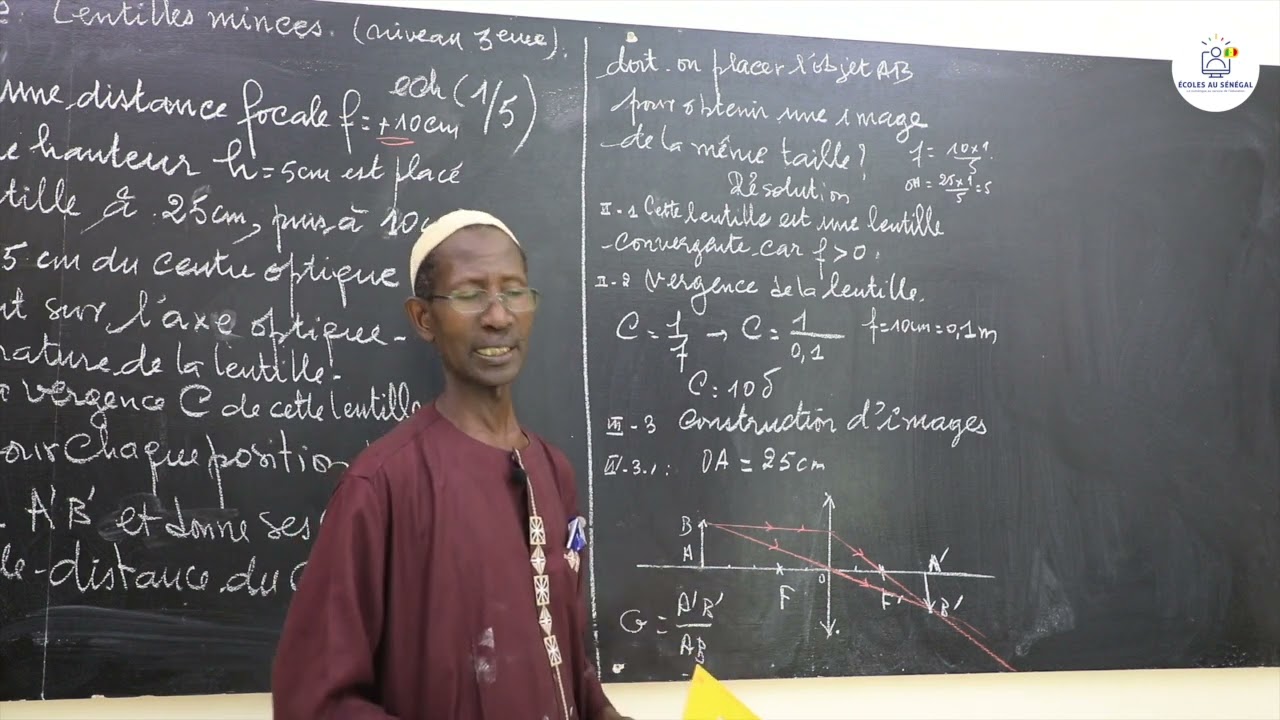 Lentilles minces. (niveau 3eme).
ech (1/5)
une distance focale f = +10cm
hauteur h = 5cm est placé
tille à 25cm, puis à 10c
5 cm du centre optique
t sur l'axe optique.
nature de la lentille.
vergence C de cette lentille
our chaque position
A'B' et donne ses
le distance du
doit-on placer l'objet AB
pour obtenir une image
de la même taille?
f = 10x1/5
OA = 25x1/5 = 5
Résolution
II-1 Cette lentille est une lentille
convergente car f > 0.
II-2 Vergence de la lentille.
C = 1/f → C = 1/0,1 f = 10cm = 0,1m
C = 10δ
III-3 Construction d'images
II-3.1: OA = 25cm
B
A
F
o
F'
A'
B'
G = A'B'/AB
ÉCOLES AU SÉNÉGAL